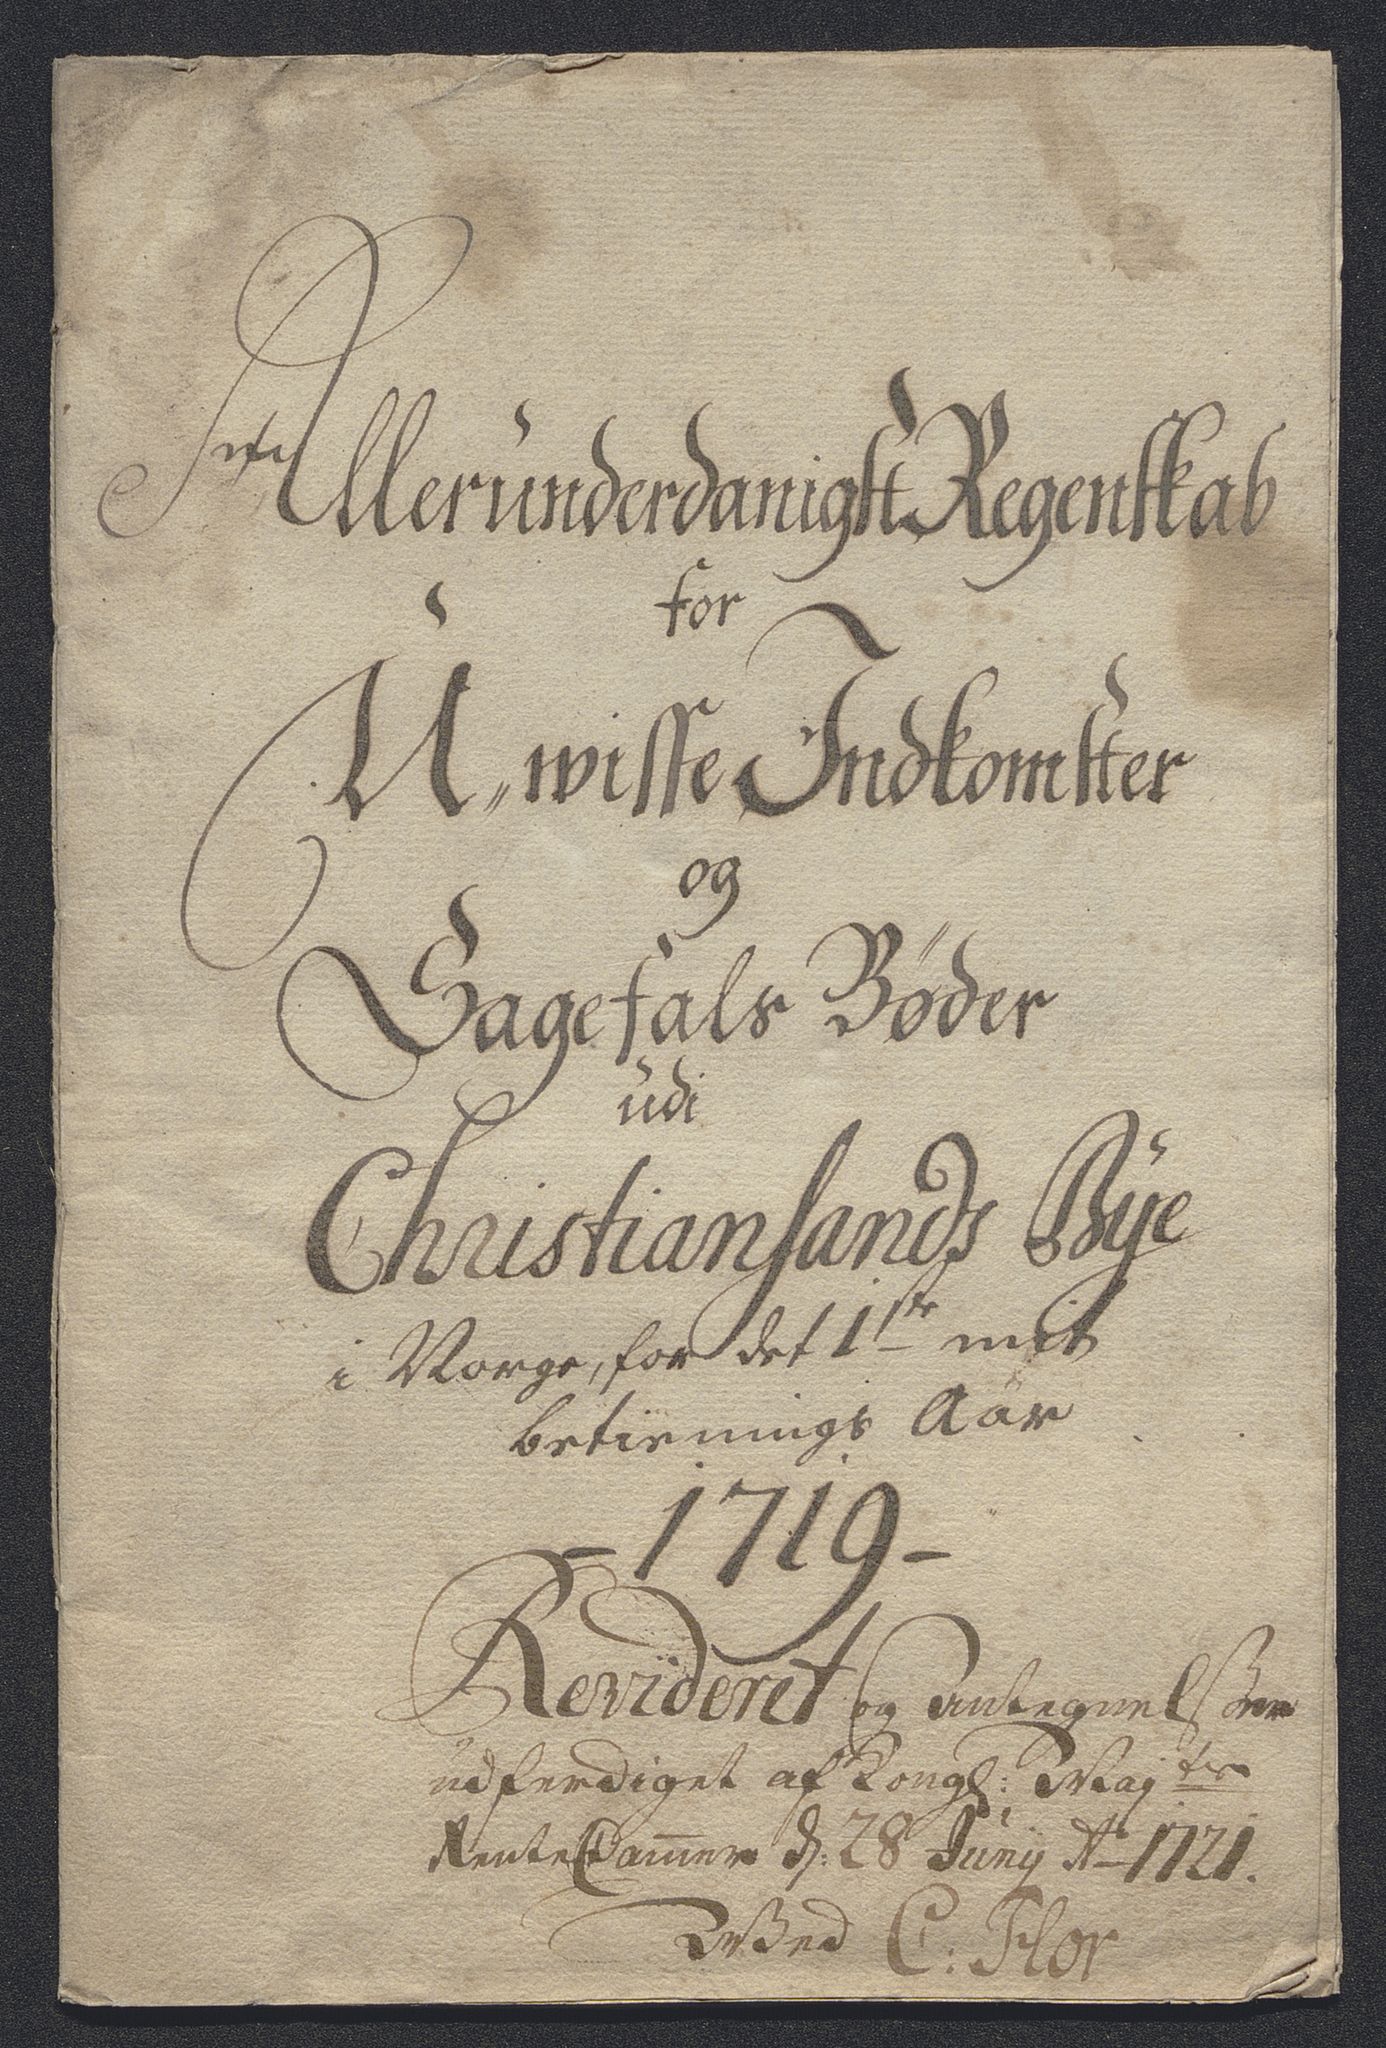 Allerunderdanigst Regenskab
for
U-wisse Indkomster
og
Sagefals Bøder
udi
Christiansands Bÿe
i Norge, for det 1ste mit
betienings Aar
-1719-
Revideret og Antegnelsser
udferdiget af Kongl: Maijts
Rente Cammer d: 28 Junij Ao 1721.
Wed C: Flor